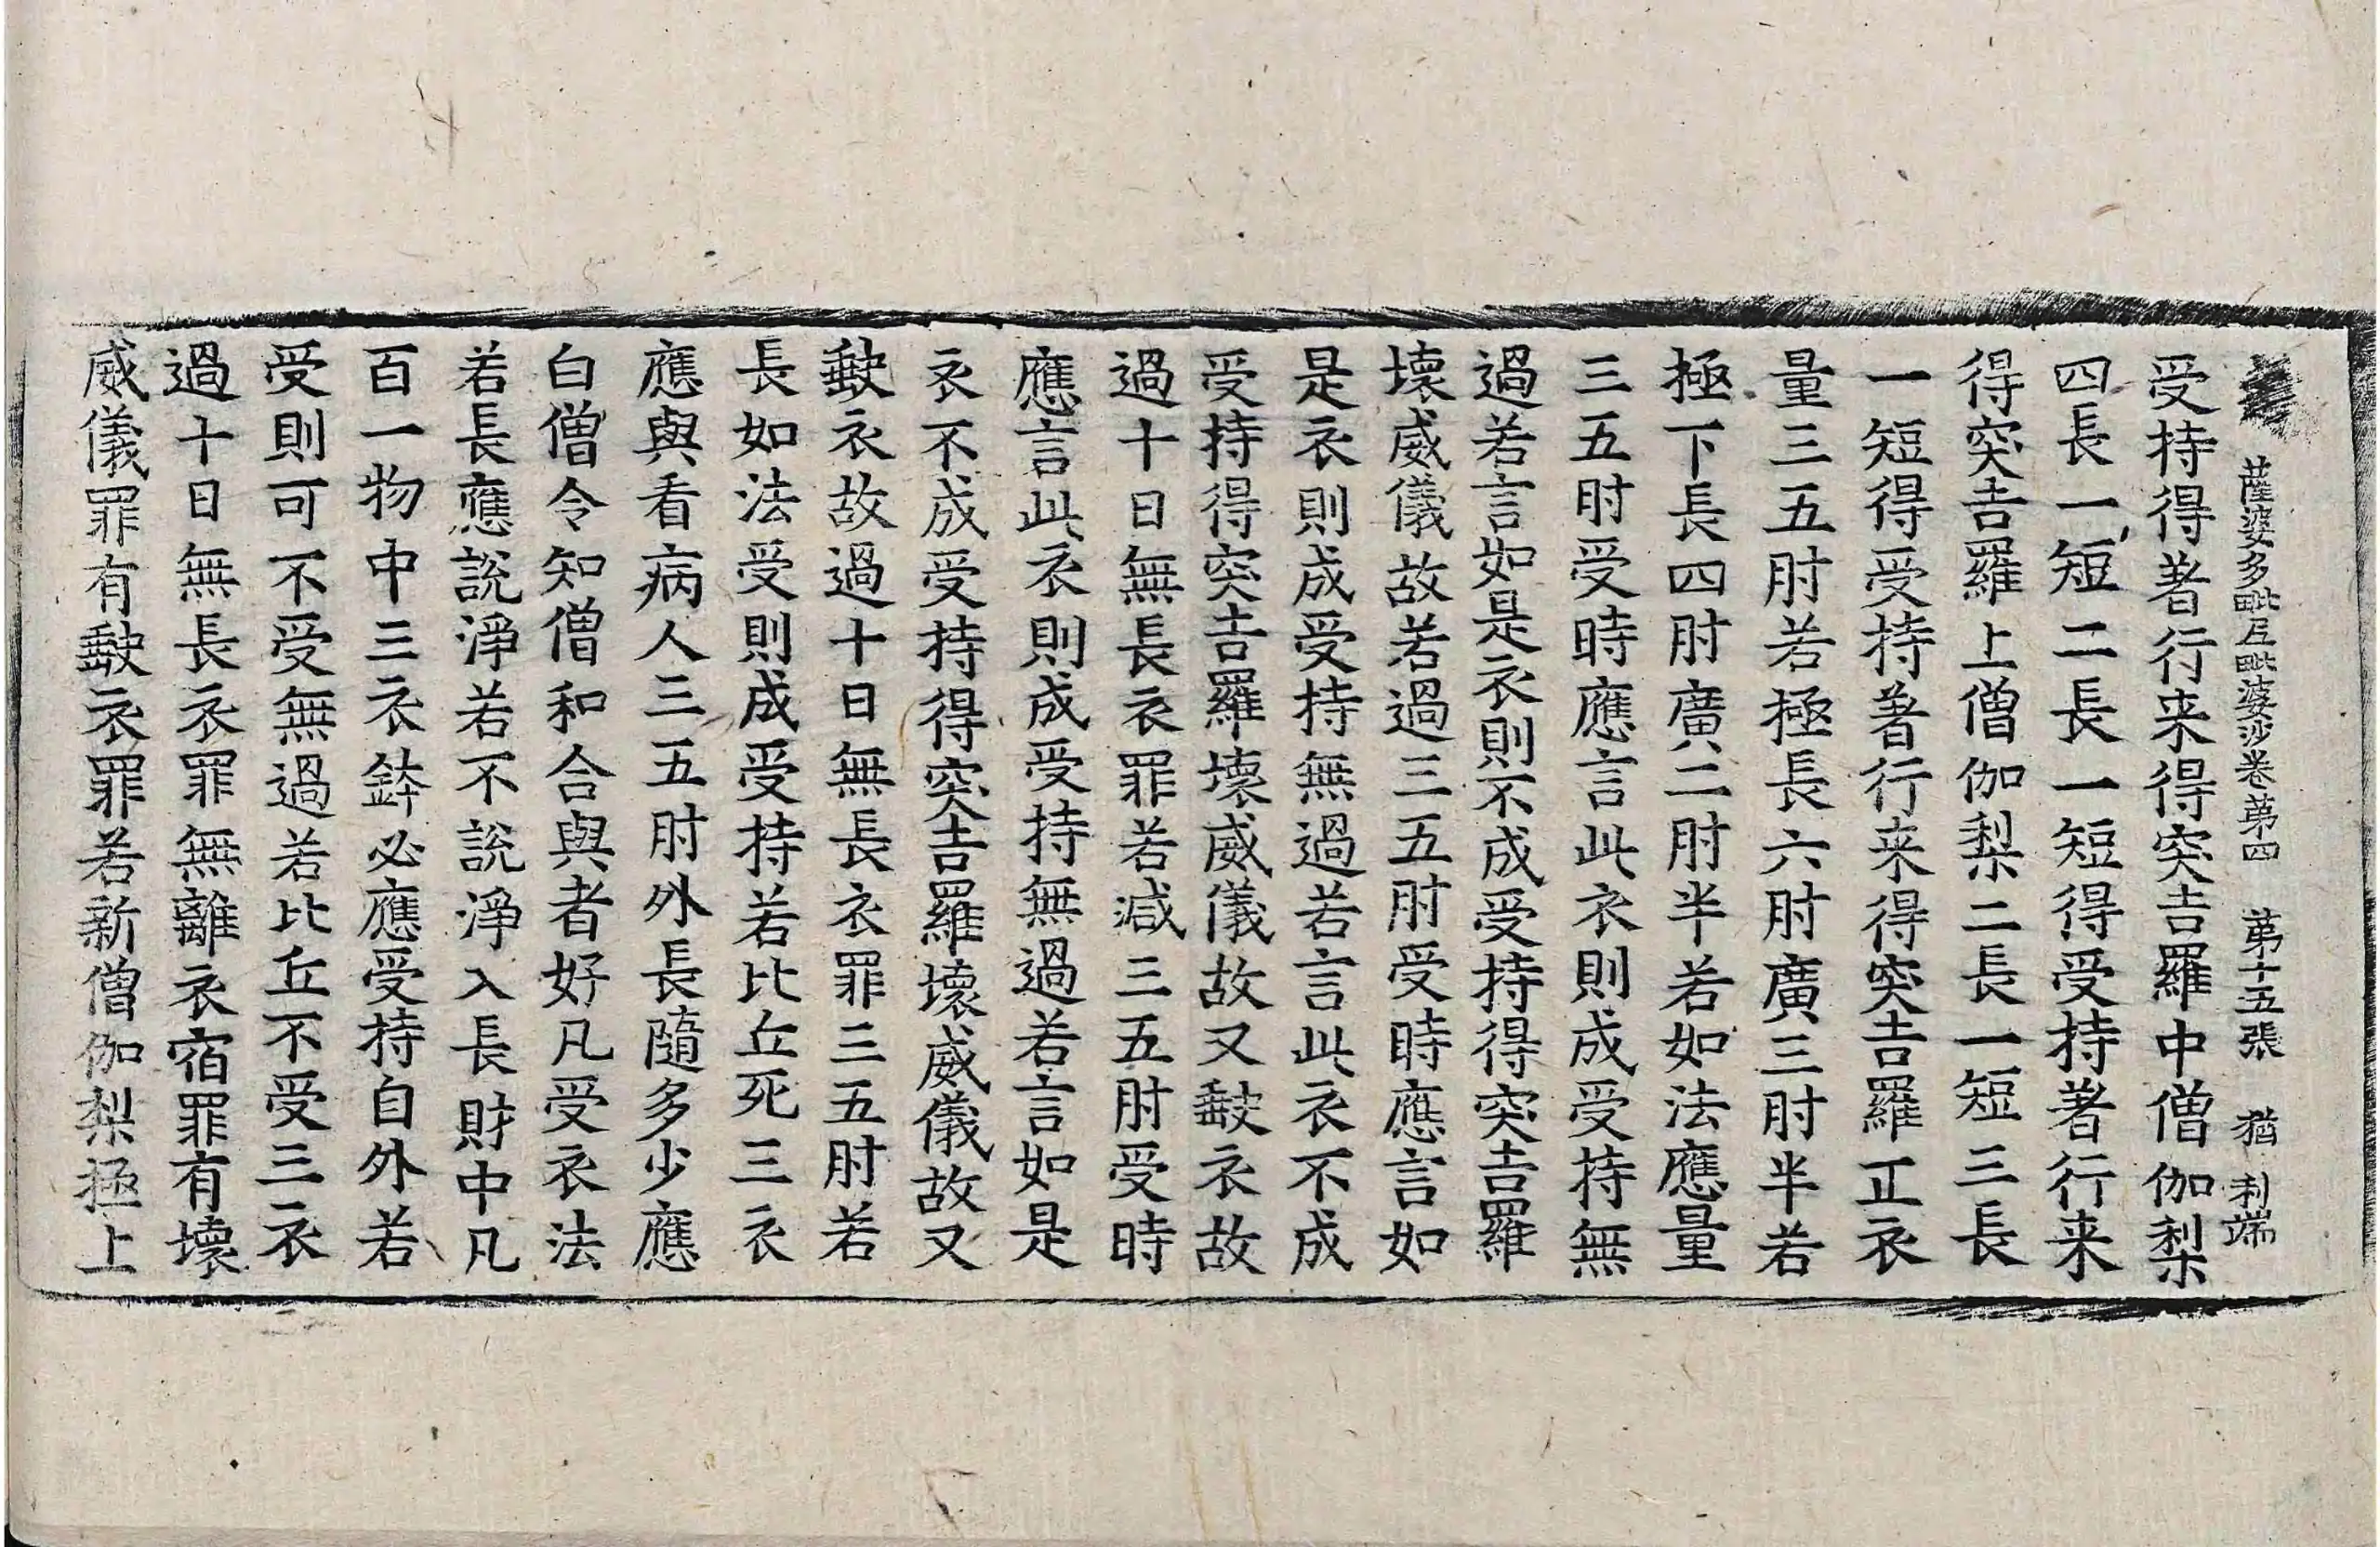 薩婆多毗尼毗婆沙卷苐四 苐十五張 猶 利端
受持得著行来得突吉羅中僧伽梨
四長一短二長一短得受持著行来
得突吉羅上僧伽梨二長一短三長
一短得受持著行来得突吉羅正衣
量三五肘若極長六肘廣三肘半若
極下長四肘廣二肘半若如法應量
三五肘受時應言此衣則成受持無
過若言如是衣則不成受持得突吉羅
壞威儀故若過三五肘受時應言如
是衣則成受持無過若言此衣不成
受持得突吉羅壞威儀故又𡙇衣故
過十日無長衣罪若减三五肘受時
應言此衣則成受持無過若言如是
衣不成受持得突吉羅壞威儀故又
𡙇衣故過十日無長衣罪三五肘若
長如法受則成受持若比丘死三衣
應與看病人三五肘外長隨多少應
白僧令知僧和合與者好凡受衣法
若長應說淨若不說淨入長財中凡
百一物中三衣鉢必應受持自外若
受則可不受無過若比丘不受三衣
過十日無長衣罪無離衣宿罪有壞
威儀罪有𡙇衣罪若新僧伽梨極上